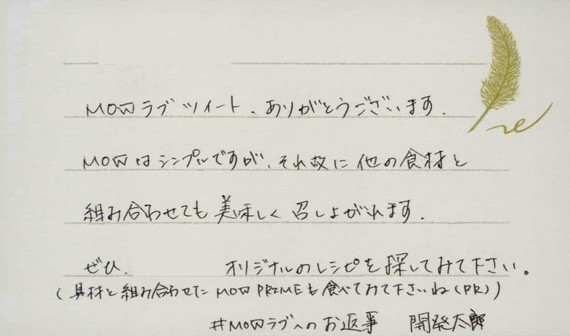 MOWラブツイート、ありがとうございます。
MOWはシンプルですが、それ故に他の食材と
組み合わせても美味しく召しあがれます。
ぜひ、 オリジナルのレシピを探してみて下さい。
(具材と組み合わせたMOW PRIMEも食べてみて下さいね(PR))
#MOWラブへのお返事 開発太郎